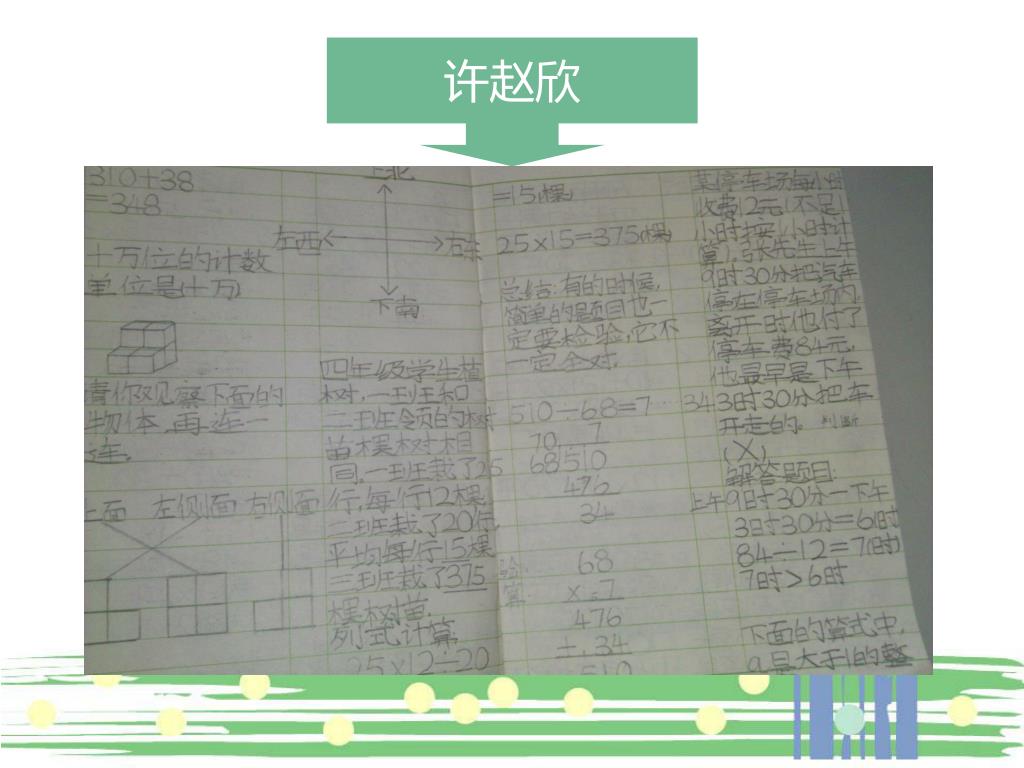 许赵欣
310+38
=348
十万位的计数
单位是(十万)
请你观察下面的
物体,再连一
连。
上面 左侧面 右侧面
上北
左西 右东
下南
四年级学生植
树,一班和
二班领的树
苗棵树相
同。一班栽了25
行,每行12棵
二班栽了20行,
平均每行15棵
三班栽了375
棵树苗.
列式计算
25×12÷20
=15(棵)
25×15=375(棵)
总结:有的时候,
简单的题目也一
定要检验,它不
一定全对.
510÷68=7……34
70 7
68 510
476
34
验算:
68
×.7
476
+.34
510
某停车场每小时
收费12元(不足1
小时按1小时计
算),张先生上午
9时30分把汽车
停在停车场内,
离开时他付了
停车费84元,
他最早是下午
3时30分把车
开走的。判断
(×)
解答题目:
上午9时30分—下午
3时30分=6(时)
84÷12=7(时)
7时>6时
下面的算式中,
a是大于1的整